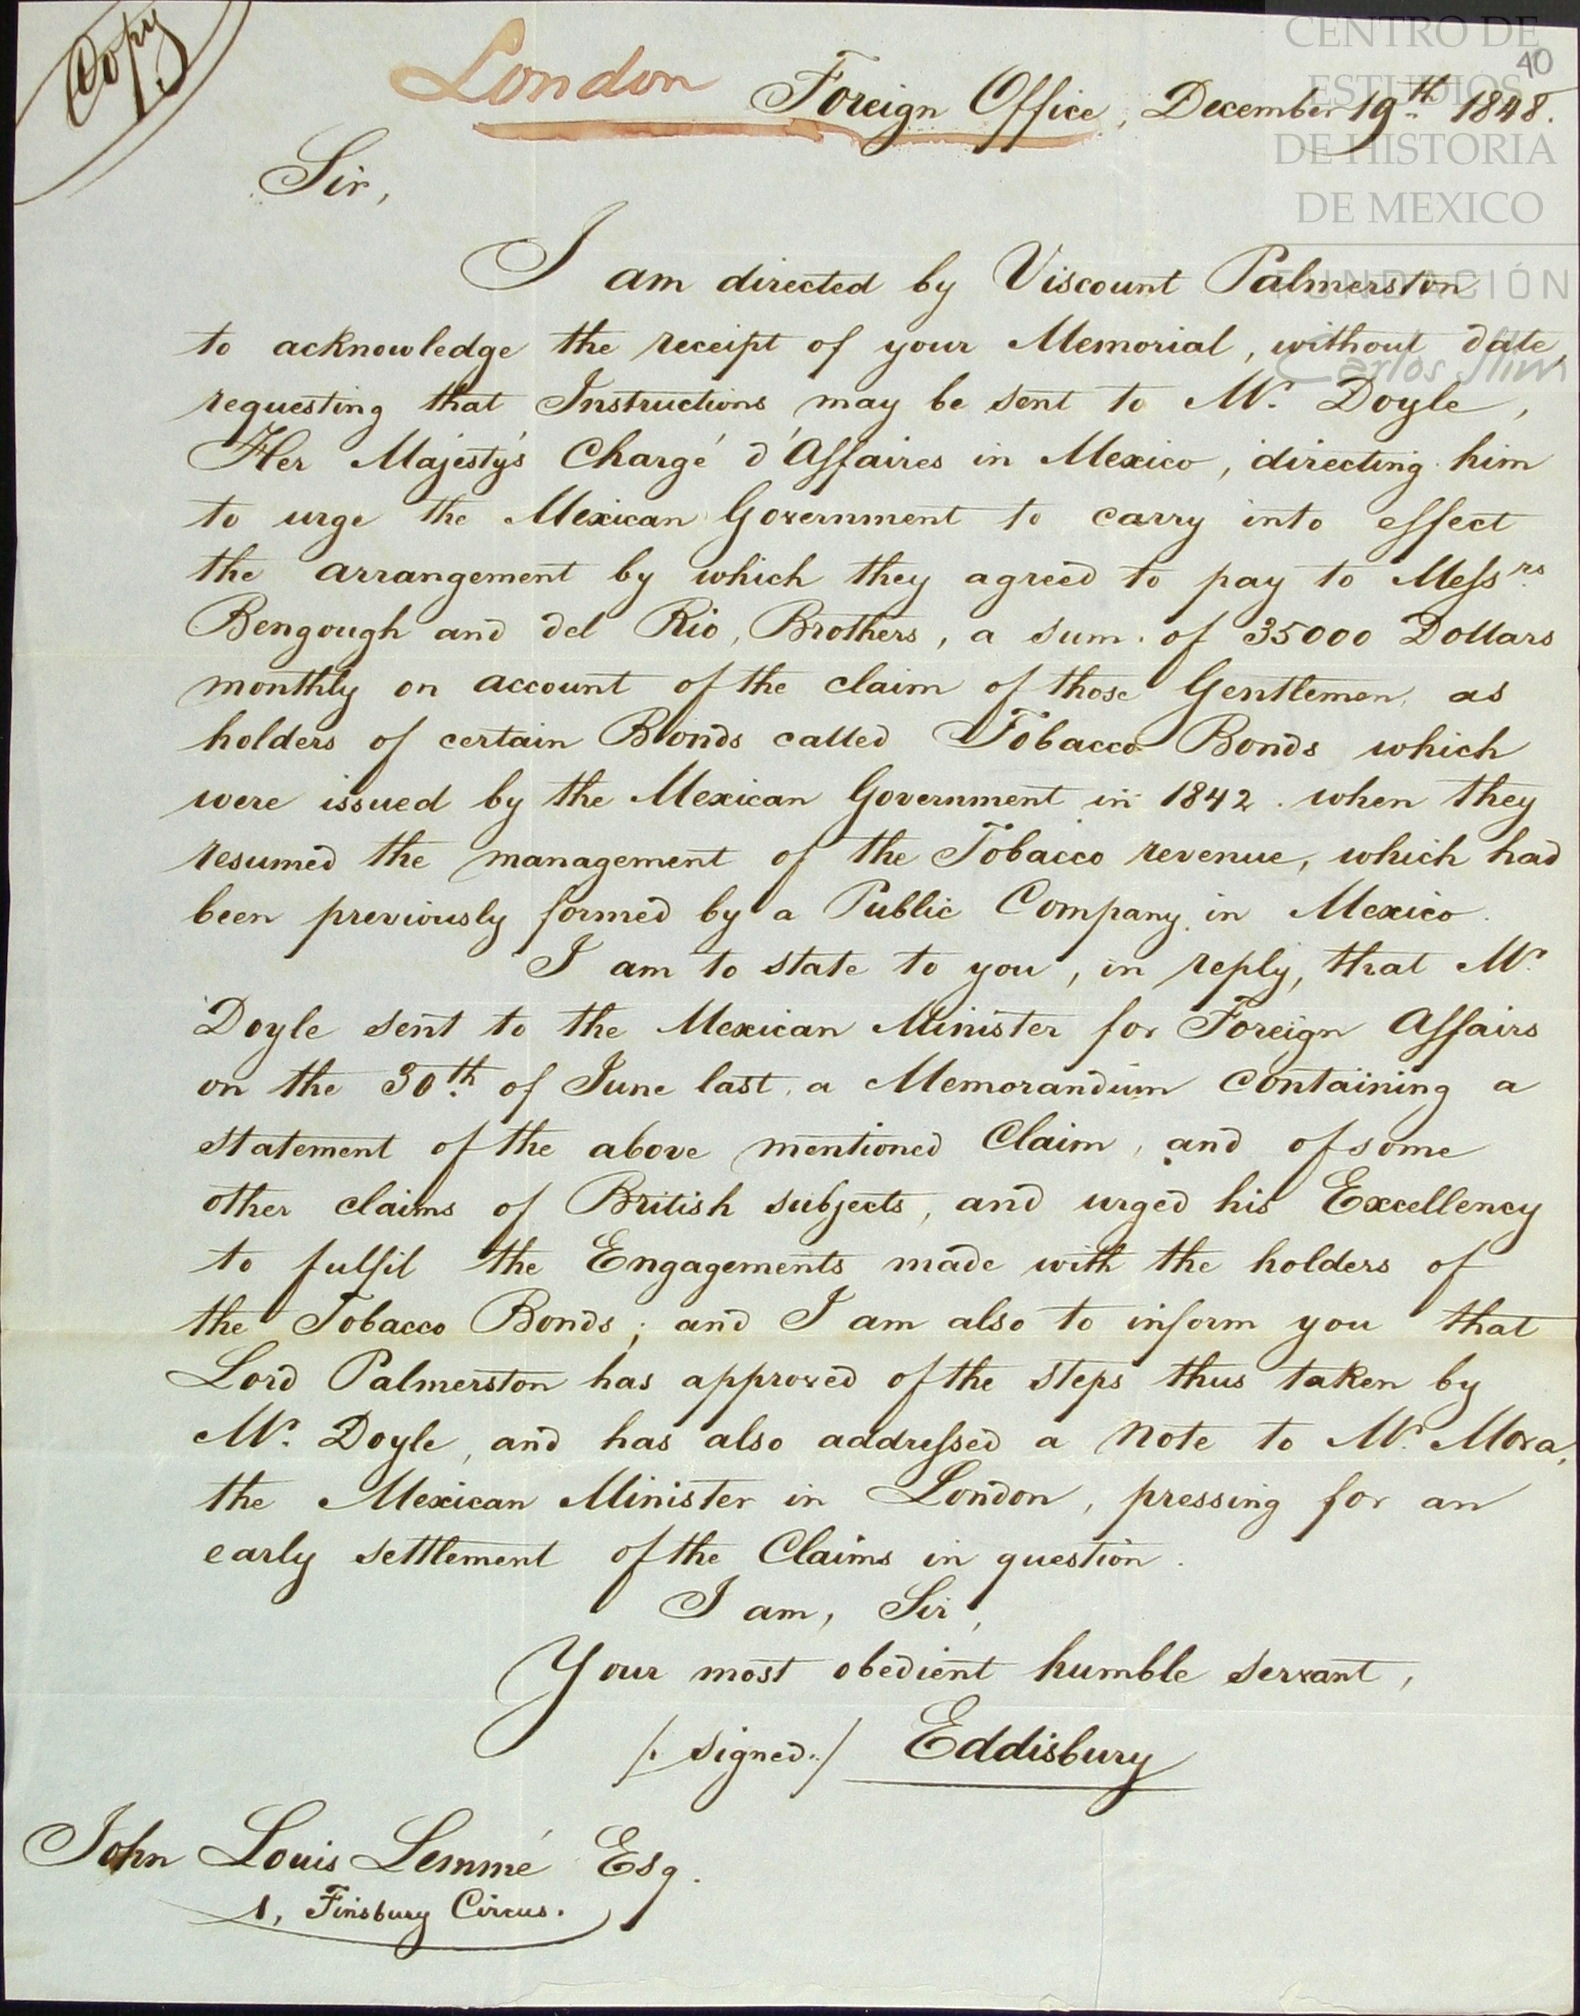 Copy
London Foreign Office, December 19th 1848.
40
CENTRO DE
ESTUDIOS
DE HISTORIA
DE MEXICO
FUNDACIÓN
Carlos Slim
Sir,
I am directed by Viscount Palmerston
to acknowledge the receipt of your Memorial, without date,
requesting that Instructions may be sent to Mr. Doyle,
Her Majesty's Chargé d'Affaires in Mexico, directing him
to urge the Mexican Government to carry into effect
the arrangement by which they agreed to pay to Messrs.
Bengough and del Rio, Brothers, a sum of 35000 Dollars
monthly on account of the claim of those Gentlemen, as
holders of certain Bonds called Tobacco Bonds which
were issued by the Mexican Government in 1842. when they
resumed the management of the Tobacco revenue, which had
been previously formed by a Public Company in Mexico.
I am to state to you, in reply, that Mr.
Doyle sent to the Mexican Minister for Foreign Affairs
on the 30th of June last, a Memorandum containing a
statement of the above mentioned Claim, and of some
other claims of British subjects, and urged his Excellency
to fulfil the Engagements made with the holders of
the Tobacco Bonds; and I am also to inform you that
Lord Palmerston has approved of the steps thus taken by
Mr. Doyle, and has also addressed a Note to Mr. Mora,
the Mexican Minister in London, pressing for an
early settlement of the Claims in question.
I am, Sir,
Your most obedient humble servant,
/. signed./ Eddisbury
John Louis Lemmé Esq.
1, Finsbury Circus.